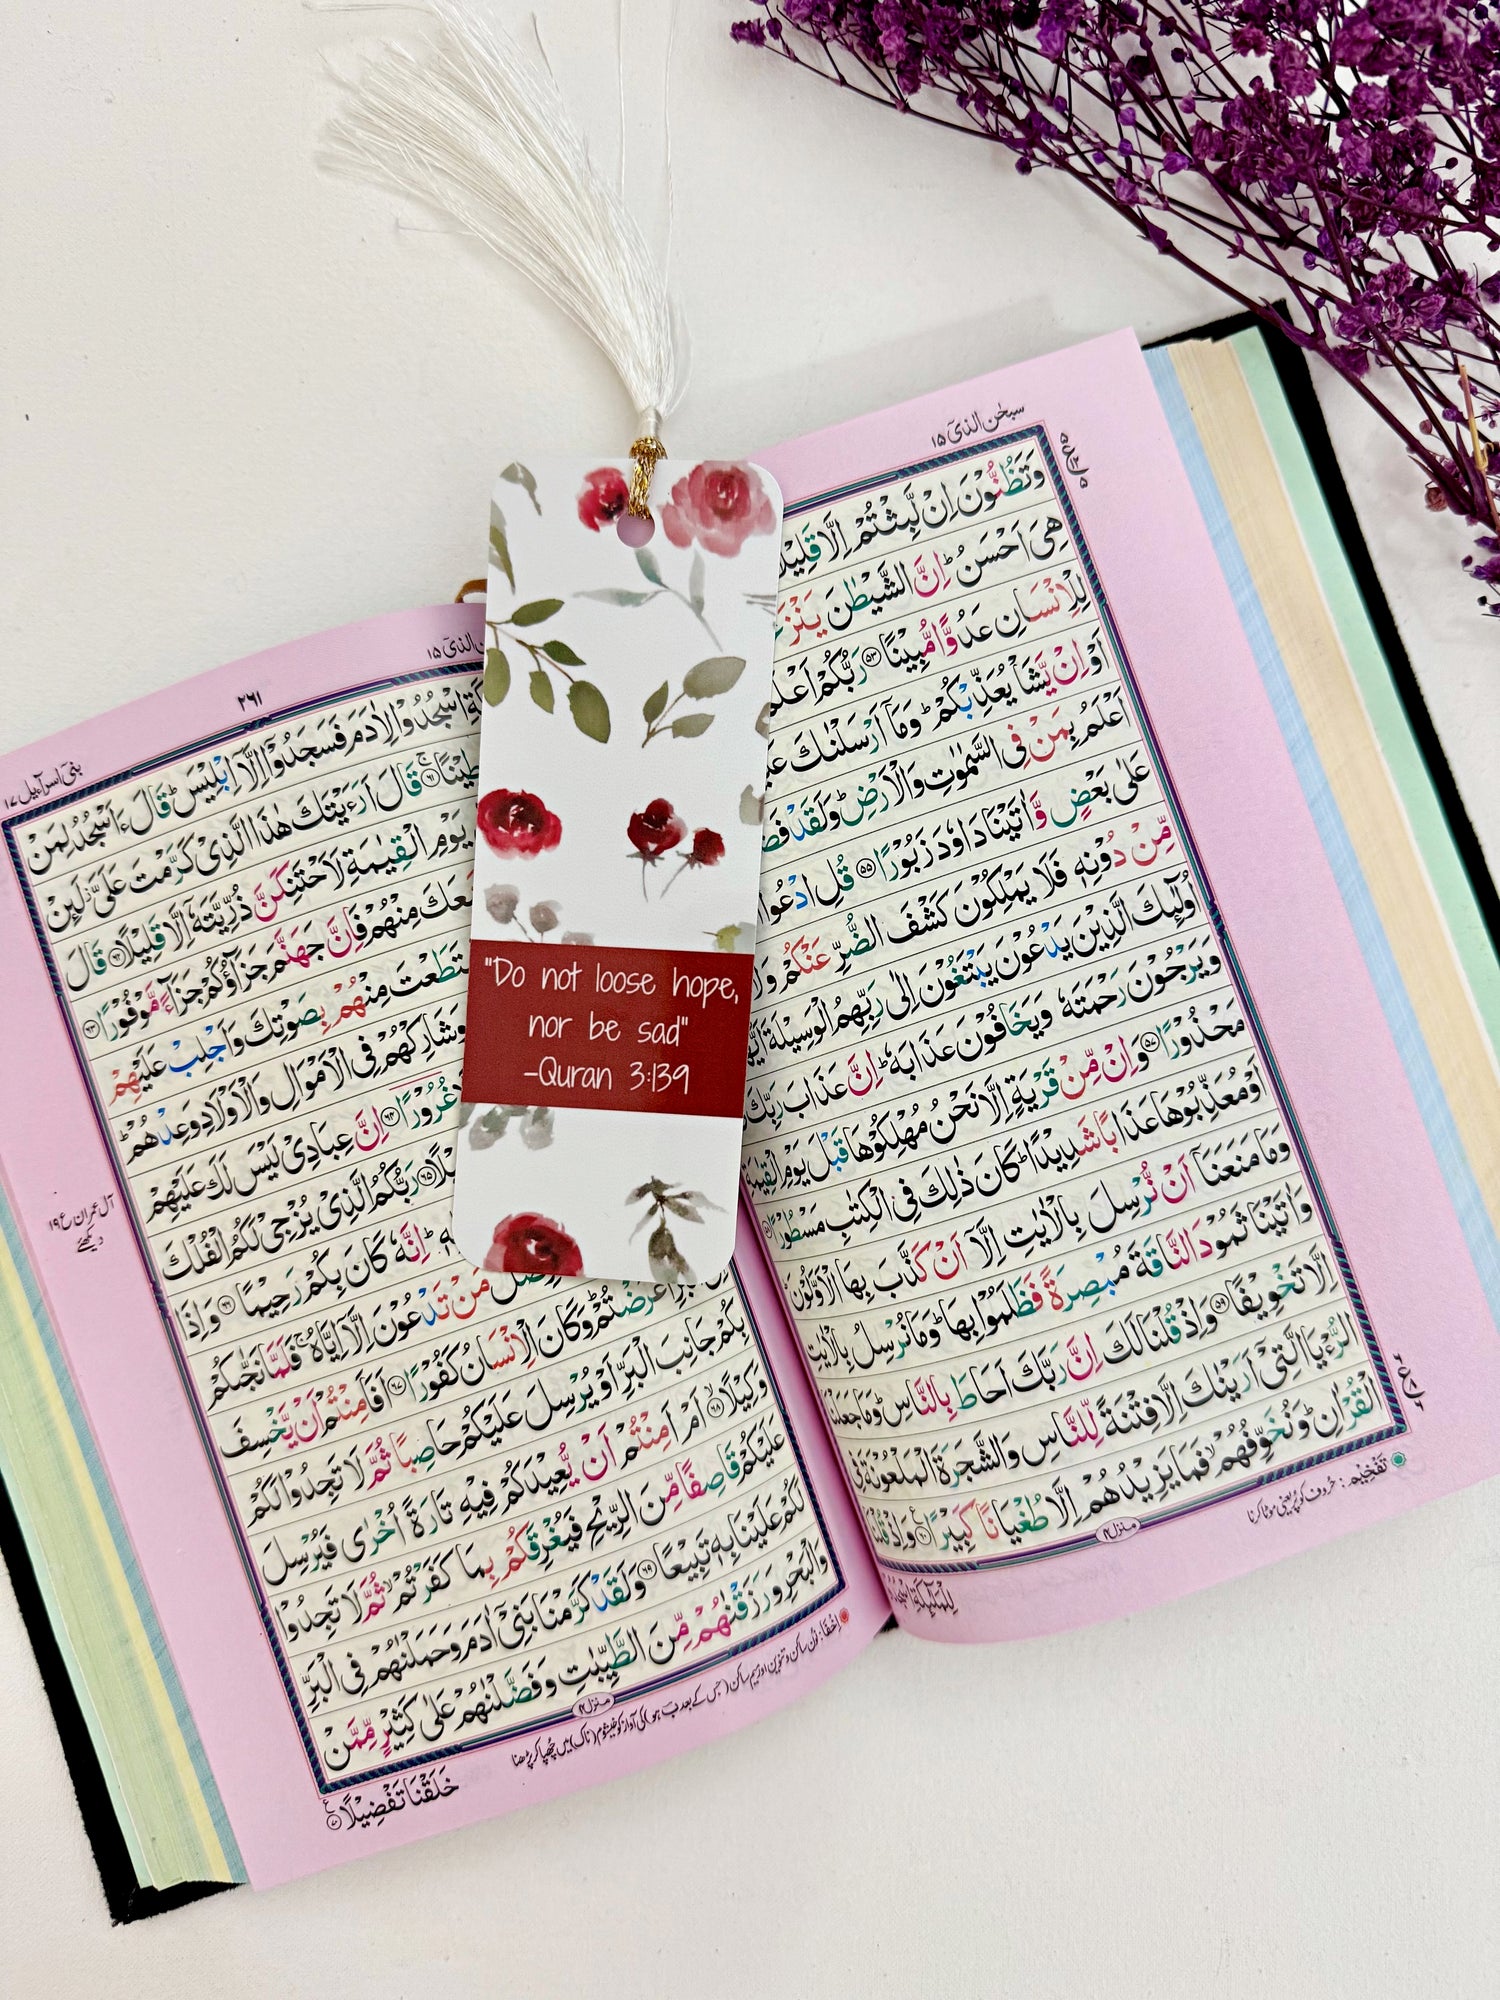 "Do not loose hope,
nor be sad"
-Quran 3:139
سبحٰن الذیٓ ۱۵
وَتَظُنُّوْنَ اِنْ لَّبِثْتُمْ اِلَّا
هِیَ اَحْسَنُ ؕ اِنَّ الشَّیْطٰنَ
لِلْاِنْسَانِ عَدُوًّا مُّبِیْنًا ﴿۵۳﴾ رَبُّكُمْ
اَوْ اِنْ یَّشَاْ یُعَذِّبْكُمْ ؕ وَمَاۤ اَرْسَلْنٰكَ
اَعْلَمُ بِمَنْ فِی السَّمٰوٰتِ وَالْاَرْضِ ؕ وَلَقَدْ
عَلٰی بَعْضٍ وَّاٰتَیْنَا دَاوٗدَ زَبُوْرًا ﴿۵۵﴾ قُلِ ادْعُوا
مِّنْ دُوْنِهٖ فَلَا یَمْلِكُوْنَ كَشْفَ الضُّرِّ عَنْكُمْ
اُولٰٓئِكَ الَّذِیْنَ یَدْعُوْنَ یَبْتَغُوْنَ اِلٰی رَبِّهِمُ الْوَسِیْلَةَ
وَیَرْجُوْنَ رَحْمَتَهٗ وَیَخَافُوْنَ عَذَابَهٗ ؕ اِنَّ عَذَابَ رَبِّكَ
مَحْذُوْرًا ﴿۵۷﴾ وَاِنْ مِّنْ قَرْیَةٍ اِلَّا نَحْنُ مُهْلِكُوْهَا قَبْلَ یَوْمِ الْقِیٰمَةِ
اَوْ مُعَذِّبُوْهَا عَذَابًا شَدِیْدًا ؕ كَانَ ذٰلِكَ فِی الْكِتٰبِ مَسْطُوْرًا ﴿۵۸﴾
وَمَا مَنَعَنَاۤ اَنْ نُّرْسِلَ بِالْاٰیٰتِ اِلَّاۤ اَنْ كَذَّبَ بِهَا الْاَوَّلُوْنَ ؕ
وَاٰتَیْنَا ثَمُوْدَ النَّاقَةَ مُبْصِرَةً فَظَلَمُوْا بِهَا ؕ وَمَا نُرْسِلُ بِالْاٰیٰتِ
اِلَّا تَخْوِیْفًا ﴿۵۹﴾ وَاِذْ قُلْنَا لَكَ اِنَّ رَبَّكَ اَحَاطَ بِالنَّاسِ ؕ وَمَا جَعَلْنَا
الرُّءْیَا الَّتِیْۤ اَرَیْنٰكَ اِلَّا فِتْنَةً لِّلنَّاسِ وَالشَّجَرَةَ الْمَلْعُوْنَةَ فِی
الْقُرْاٰنِ ؕ وَنُخَوِّفُهُمْ ۙ فَمَا یَزِیْدُهُمْ اِلَّا طُغْیَانًا كَبِیْرًا ﴿۶۰﴾ وَاِذْ قُلْنَا
منزل۴
تَفْخِیْم: حروف کو پُر یعنی موٹا کرنا
بنیٓ اسرآءیل ۱۷
۲۶۱
اسْجُدُوْا لِاٰدَمَ فَسَجَدُوْۤا اِلَّاۤ اِبْلِیْسَ ؕ قَالَ ءَاَسْجُدُ لِمَنْ
طِیْنًا ﴿۶۱﴾ قَالَ اَرَءَیْتَكَ هٰذَا الَّذِیْ كَرَّمْتَ عَلَیَّ ؗ لَئِنْ
یَوْمِ الْقِیٰمَةِ لَاَحْتَنِكَنَّ ذُرِّیَّتَهٗۤ اِلَّا قَلِیْلًا ﴿۶۲﴾ قَالَ
مِنْهُمْ فَاِنَّ جَهَنَّمَ جَزَآؤُكُمْ جَزَآءً مَّوْفُوْرًا ﴿۶۳﴾
مِنْهُمْ بِصَوْتِكَ وَاَجْلِبْ عَلَیْهِمْ
وَشَارِكْهُمْ فِی الْاَمْوَالِ وَالْاَوْلَادِ وَعِدْهُمْ ؕ
غُرُوْرًا ﴿۶۴﴾ اِنَّ عِبَادِیْ لَیْسَ لَكَ عَلَیْهِمْ
رَبُّكُمُ الَّذِیْ یُزْجِیْ لَكُمُ الْفُلْكَ
اِنَّهٗ كَانَ بِكُمْ رَحِیْمًا ﴿۶۶﴾ وَاِذَا
مَنْ تَدْعُوْنَ اِلَّاۤ اِیَّاهُ ۚ فَلَمَّا نَجّٰىكُمْ
اَعْرَضْتُمْ ؕ وَكَانَ الْاِنْسَانُ كَفُوْرًا ﴿۶۷﴾ اَفَاَمِنْتُمْ اَنْ یَّخْسِفَ
بِكُمْ جَانِبَ الْبَرِّ اَوْ یُرْسِلَ عَلَیْكُمْ حَاصِبًا ثُمَّ لَا تَجِدُوْا لَكُمْ
وَكِیْلًا ﴿۶۸﴾ اَمْ اَمِنْتُمْ اَنْ یُّعِیْدَكُمْ فِیْهِ تَارَةً اُخْرٰی فَیُرْسِلَ
عَلَیْكُمْ قَاصِفًا مِّنَ الرِّیْحِ فَیُغْرِقَكُمْ بِمَا كَفَرْتُمْ ۙ ثُمَّ لَا تَجِدُوْا
لَكُمْ عَلَیْنَا بِهٖ تَبِیْعًا ﴿۶۹﴾ وَلَقَدْ كَرَّمْنَا بَنِیْۤ اٰدَمَ وَحَمَلْنٰهُمْ فِی الْبَرِّ
وَالْبَحْرِ وَرَزَقْنٰهُمْ مِّنَ الطَّیِّبٰتِ وَفَضَّلْنٰهُمْ عَلٰی كَثِیْرٍ مِّمَّنْ
منزل۴
خَلَقْنَا تَفْضِیْلًا ﴿۷۰﴾